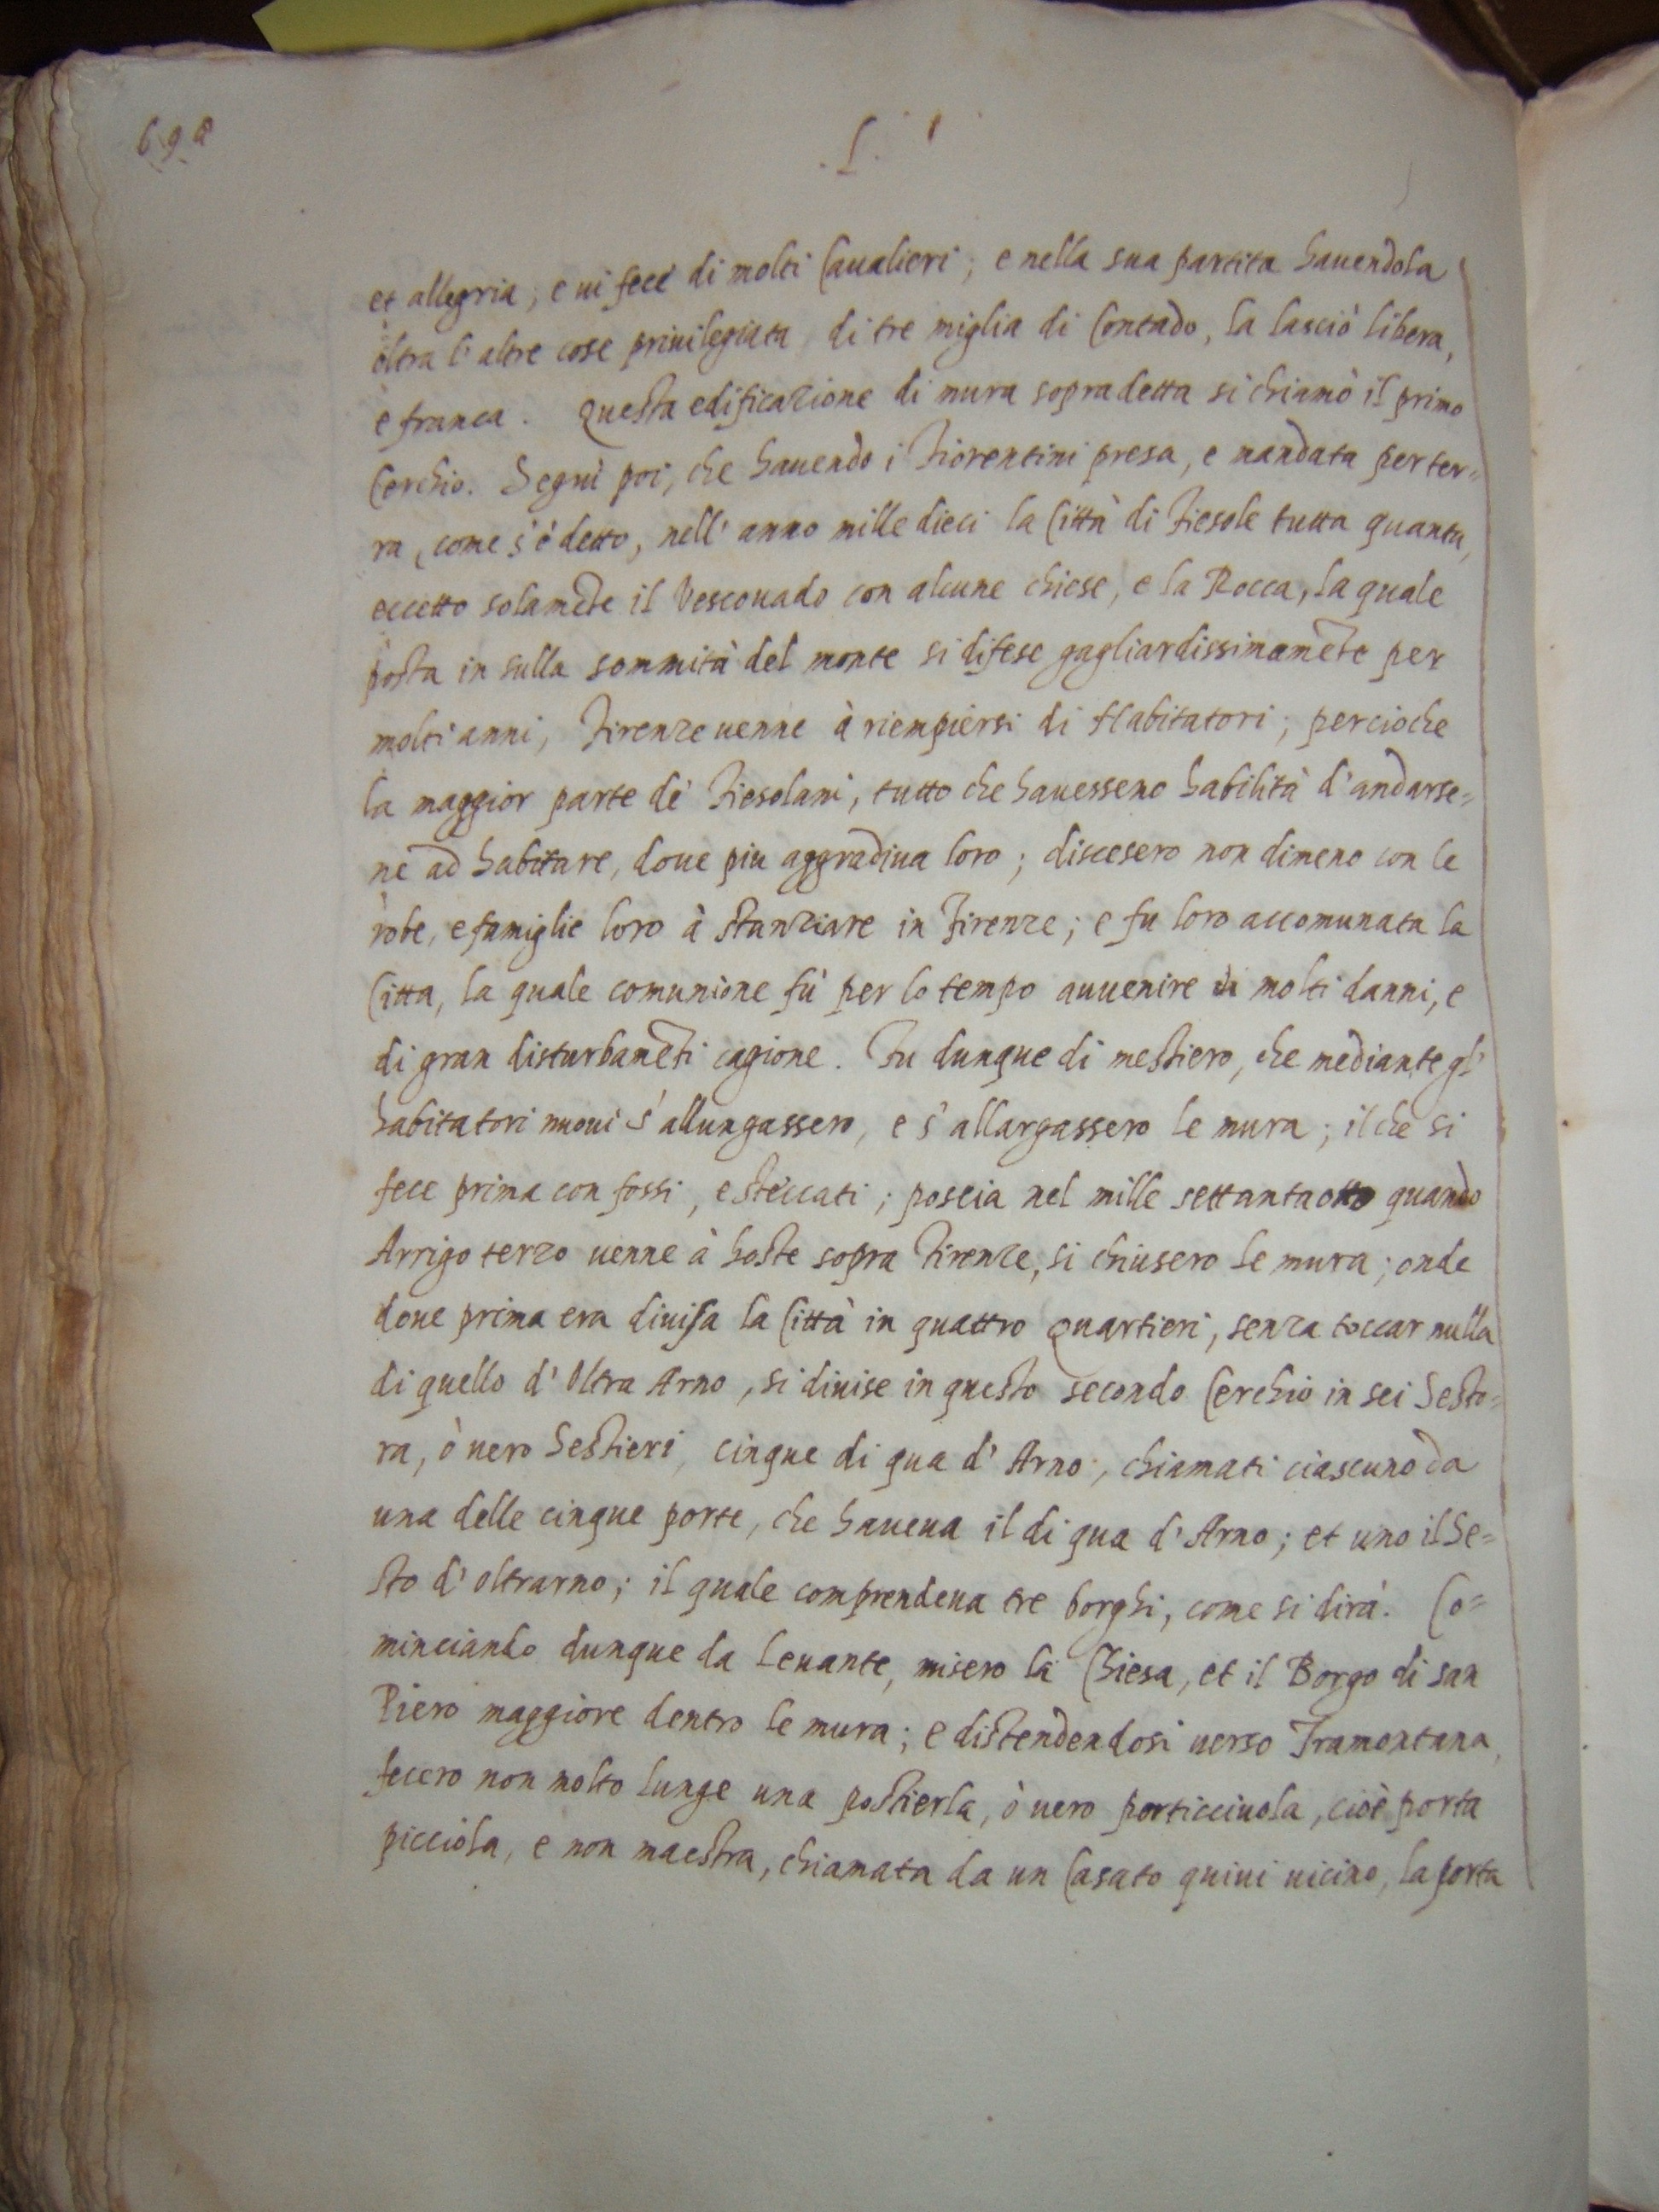 698
.L.
et allegria; e ui fece di molti Caualieri; e nella sua partita hauendola
oltra l'altre cose priuilegiata di tre miglia di Contado, la lasciò libera,
e franca. Questa edificazione di mura sopradetta si chiamò il primo
Cerchio. Seguì poi, che hauendo i Fiorentini presa, e mandata per ter=
ra, come s'è detto, nell'anno mille dieci la Città di Fiesole tutta quanta,
eccetto solamẽte il Vescouado con alcune chiese, e la Rocca, la quale
posta in sulla sommità del monte si difese gagliardissimamẽte per
molti anni, Firenze uenne à riempiersi di Habitatori; percioche
la maggior parte de' Fiesolani, tutto che hauesseno habilità d'andarse=
ne ad habitare, doue piu aggradiua loro; discesero non dimeno con le
robe, e famiglie loro à stanziare in Firenze; e fu loro accomunata la
Citta, la quale comunione fù per lo tempo auuenire di molti danni, e
di gran disturbamẽti cagione. Fu dunque di mestiero, che mediante gl'
habitatori nuoui s'allungassero, e s'allargassero le mura; il che si
fece prima con fossi, e steccati; poscia nel mille settantaotto quando
Arrigo terzo uenne à hoste sopra Firenze, si chiusero le mura; onde
doue prima era diuisa la Città in quattro Quartieri, senza toccar nulla
di quello d'Oltra Arno, si diuise in questo secondo Cerchio in sei Sesto=
ra, ò uero Sestieri, cinque di qua d'Arno, chiamati ciascuno da
una delle cinque porte, che haueua il di qua d'Arno; et uno il Se=
sto d'oltrarno; il quale comprendeua tre borghi, come si dirà. Co=
minciando dunque da Leuante, misero la Chiesa, et il Borgo di san
Piero maggiore dentro le mura; e distendendosi uerso Tramontana,
fecero non molto lunge una postierla, ò uero porticciuola, cioè porta
picciola, e non maestra, chiamata da un Casato quiui uicino, la porta